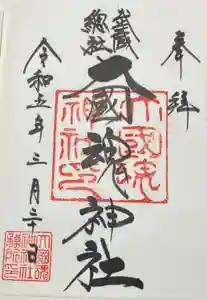 奉拝
武蔵
總社
大國魂神社
大國魂
神社印
令和五年三月三十日
大國魂
神社